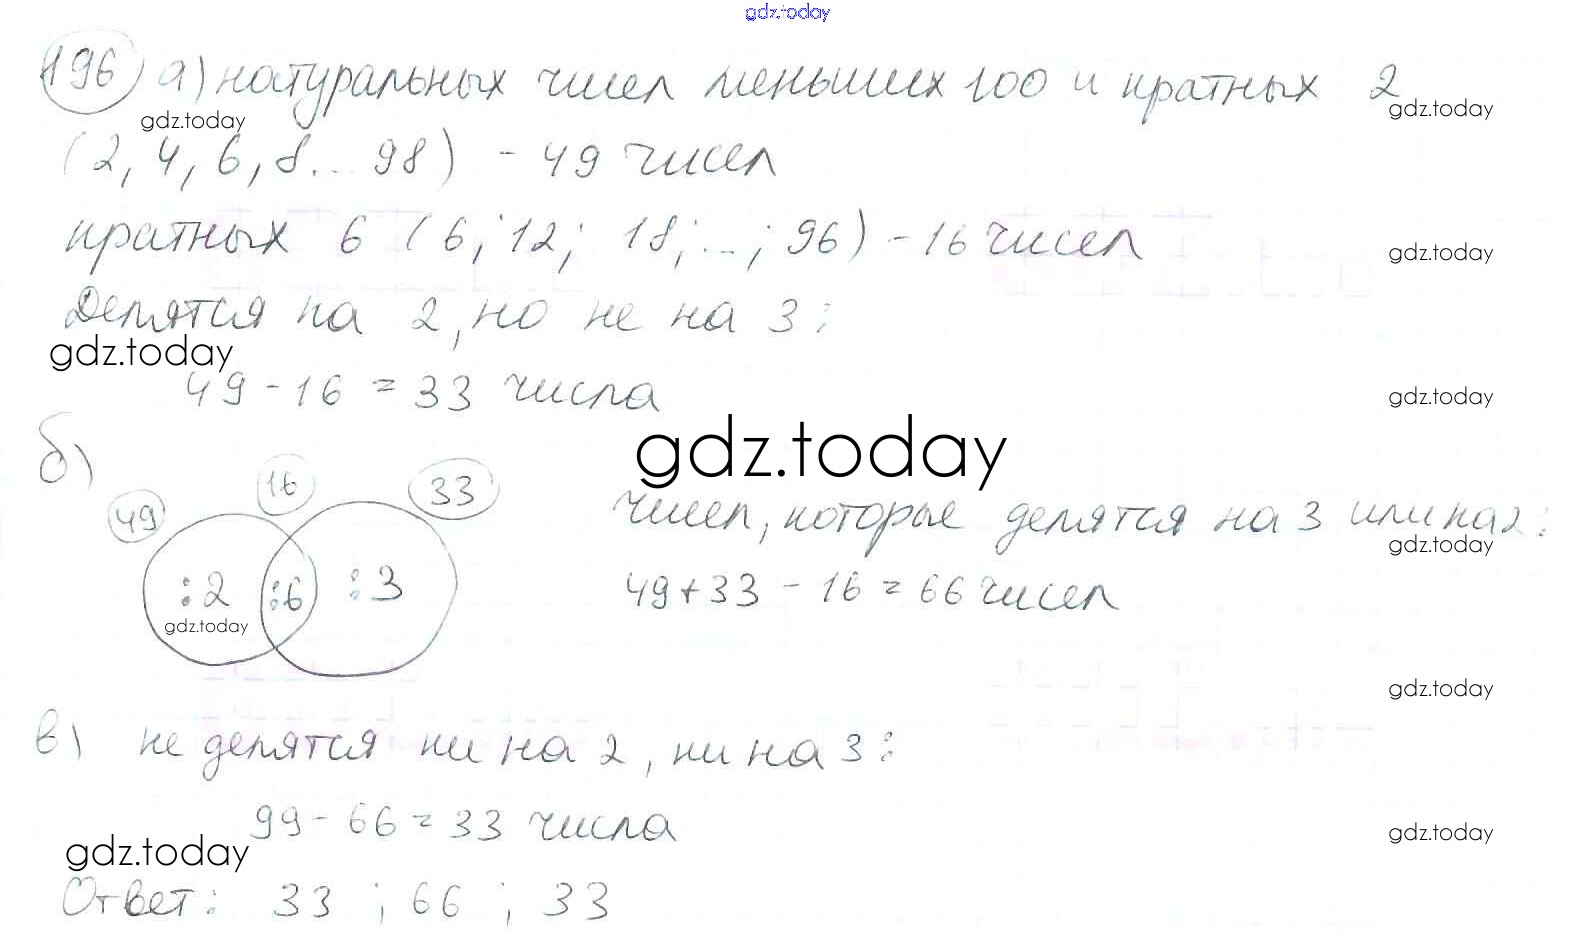 gdz.today
196) а) натуральных чисел меньших 100 и кратных 2
gdz.today
gdz.today
(2, 4, 6, 8... 98) - 49 чисел
кратных 6 (6; 12; 18; ...; 96) - 16 чисел
gdz.today
Делятся на 2, но не на 3:
gdz.today
49 - 16 = 33 числа
gdz.today
gdz.today
б)
49
16
33
:2
:6
:3
gdz.today
чисел, которые делятся на 3 или на 2:
gdz.today
49 + 33 - 16 = 66 чисел
gdz.today
в) не делятся ни на 2, ни на 3:
99 - 66 = 33 числа
gdz.today
gdz.today
Ответ: 33 ; 66 ; 33